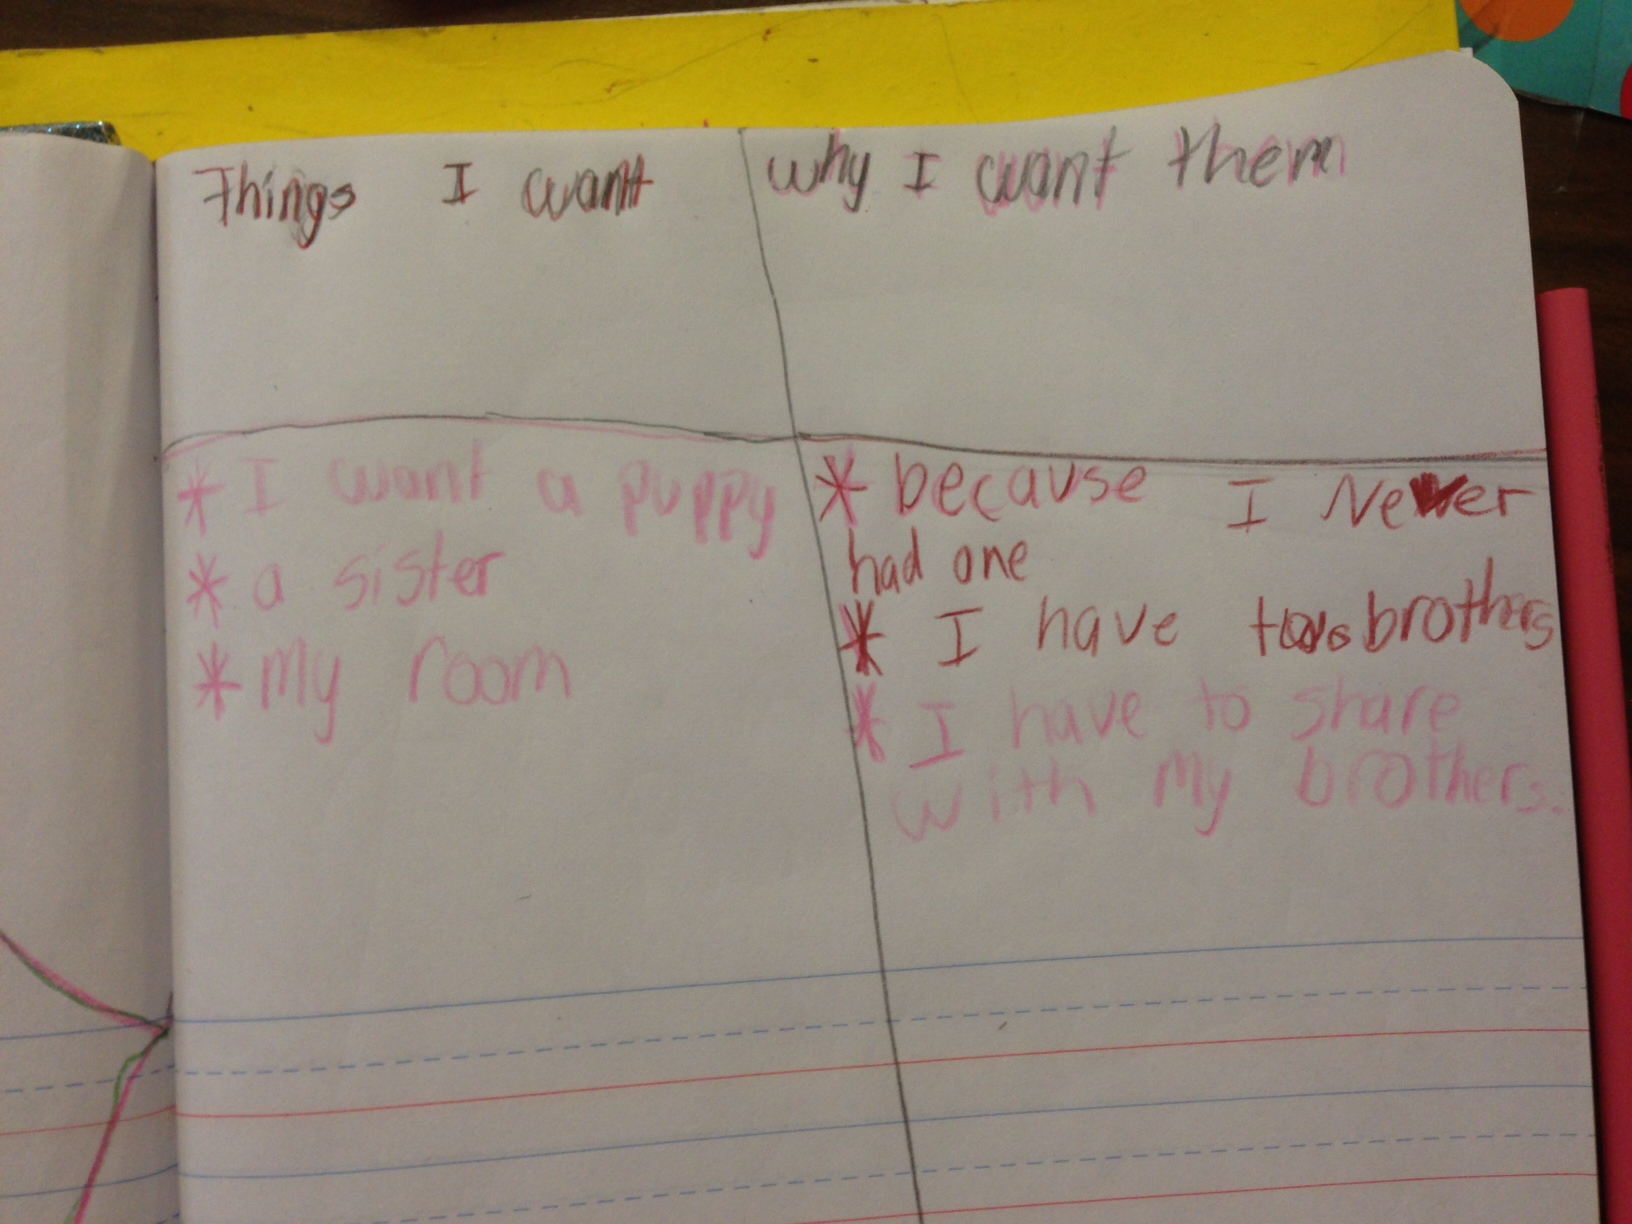 Things I want
why I want them
* I want a puppy
* a sister
* My room
* because I Never
had one
* I have two brothers
* I have to share
with My brothers.